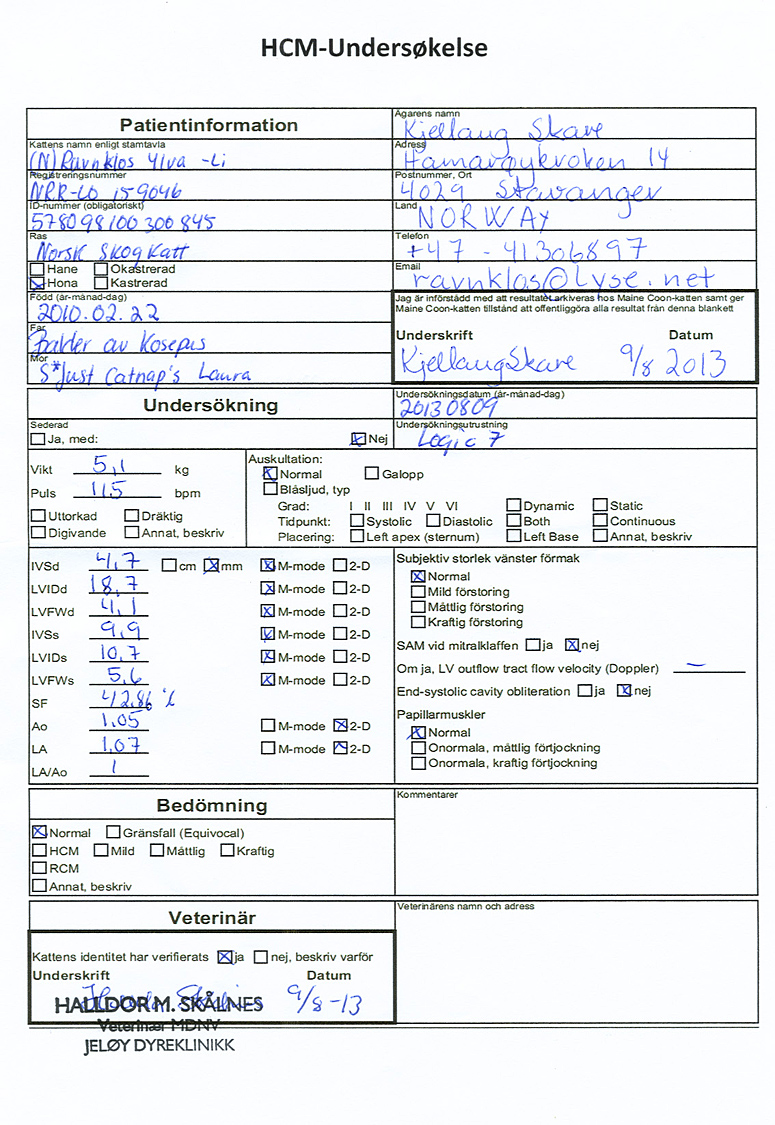 HCM-Undersøkelse
Patientinformation
Kattens namn enligt stamtavla
(N) Ravnklos Ylva -Li
Registreringsnummer
NRR-LO 159046
ID-nummer (obligatoriskt)
578098100300845
Ras
Norsk Skogkatt
Hane Okastrerad
Hona Kastrerad
Född (år-månad-dag)
2010.02.22
Far
Balder av Kosepus
Mor
S*Just Catnap's Laura
Ägarens namn
Kjellaug Skare
Adress
Hamarøykroken 14
Postnummer, Ort
4029 Stavanger
Land
NORWAY
Telefon
+47 - 41306897
Email
ravnklos@lyse.net
Jag är införstådd med att resultatet arkiveras hos Maine Coon-katten samt ger
Maine Coon-katten tillstånd att offentliggöra alla resultat från denna blankett
Underskrift Datum
Kjellaug Skare 9/8 2013
Undersökning
Sederad
Ja, med: Nej
Undersökningsdatum (år-månad-dag)
20130809
Undersökningsutrustning
Logic 7
Vikt 5,1 kg
Puls 115 bpm
Uttorkad Dräktig
Digivande Annat, beskriv
Auskultation:
Normal Galopp
Blåsljud, typ
Grad: I II III IV V VI Dynamic Static
Tidpunkt: Systolic Diastolic Both Continuous
Placering: Left apex (sternum) Left Base Annat, beskriv
IVSd 4,7 cm mm M-mode 2-D
LVIDd 18,7 M-mode 2-D
LVFWd 4,1 M-mode 2-D
IVSs 9,9 M-mode 2-D
LVIDs 10,7 M-mode 2-D
LVFWs 5,6 M-mode 2-D
SF 42,86 %
Ao 1,05 M-mode 2-D
LA 1,07 M-mode 2-D
LA/Ao 1
Subjektiv storlek vänster förmak
Normal
Mild förstoring
Måttlig förstoring
Kraftig förstoring
SAM vid mitralklaffen ja nej
Om ja, LV outflow tract flow velocity (Doppler)
End-systolic cavity obliteration ja nej
Papillarmuskler
Normal
Onormala, måttlig förtjockning
Onormala, kraftig förtjockning
Bedömning
Normal Gränsfall (Equivocal)
HCM Mild Måttlig Kraftig
RCM
Annat, beskriv
Kommentarer
Veterinär
Kattens identitet har verifierats ja nej, beskriv varför
Underskrift Datum
9/8-13
HALLDOR M. SKÅLNES
Veterinær MDNV
JELØY DYREKLINIKK
Veterinärens namn och adress